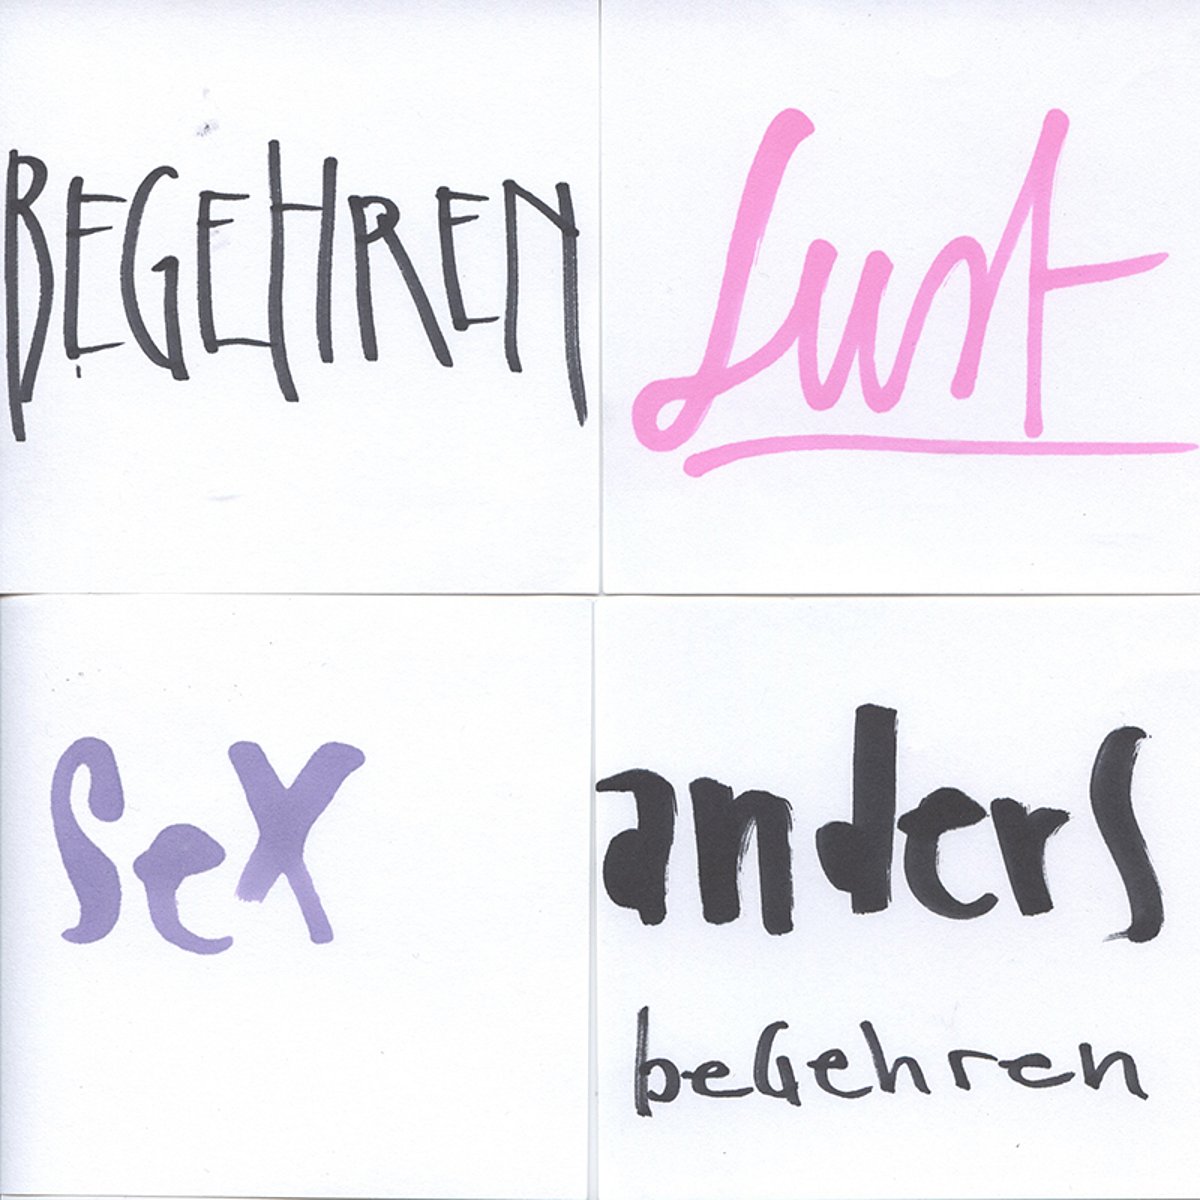 BEGEHREN
Lust
Sex
anders
beGehren